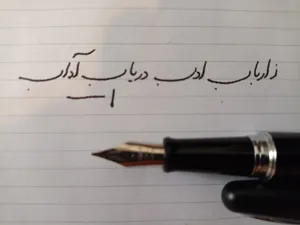 ز ارباب ادب دریاب آداب